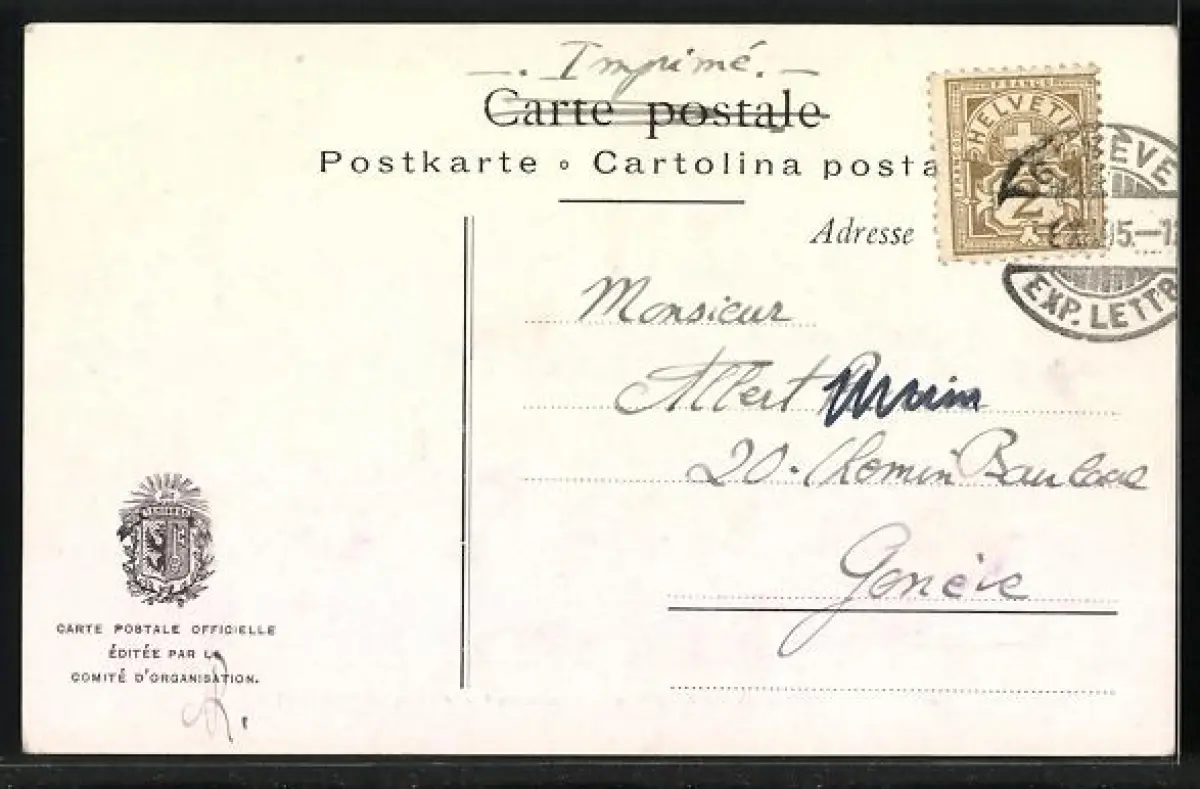 —. Imprimé. —
Carte postale
Postkarte ∘ Cartolina posta
FRANCO
HELVETI
2
Adresse
Monsieur
Albert
20. Chemin
Genève
GENÈVE
05.—1
EXP. LETTR
CARTE POSTALE OFFICIELLE
ÉDITÉE PAR LE
COMITÉ D'ORGANISATION.